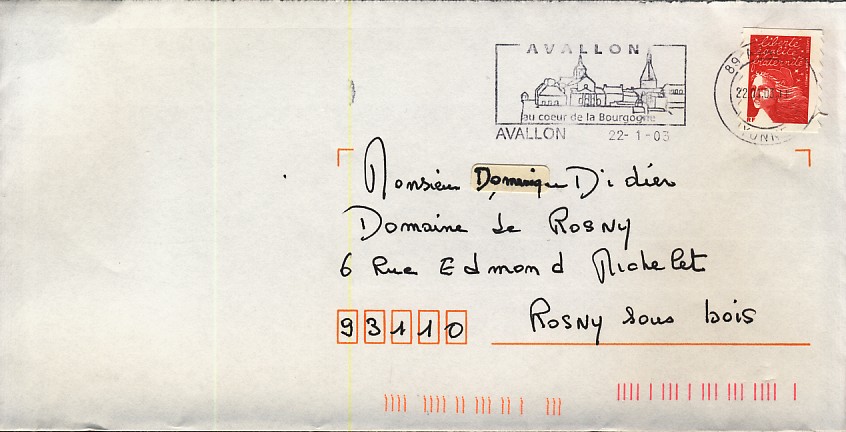 AVALLON
au coeur de la Bourgogne
AVALLON 22-1-03
liberté
égalité
fraternité
RF
89
YONNE
Monsieur Dominique Didier
Domaine de Rosny
6 Rue Edmond Michelet
93110 Rosny sous bois